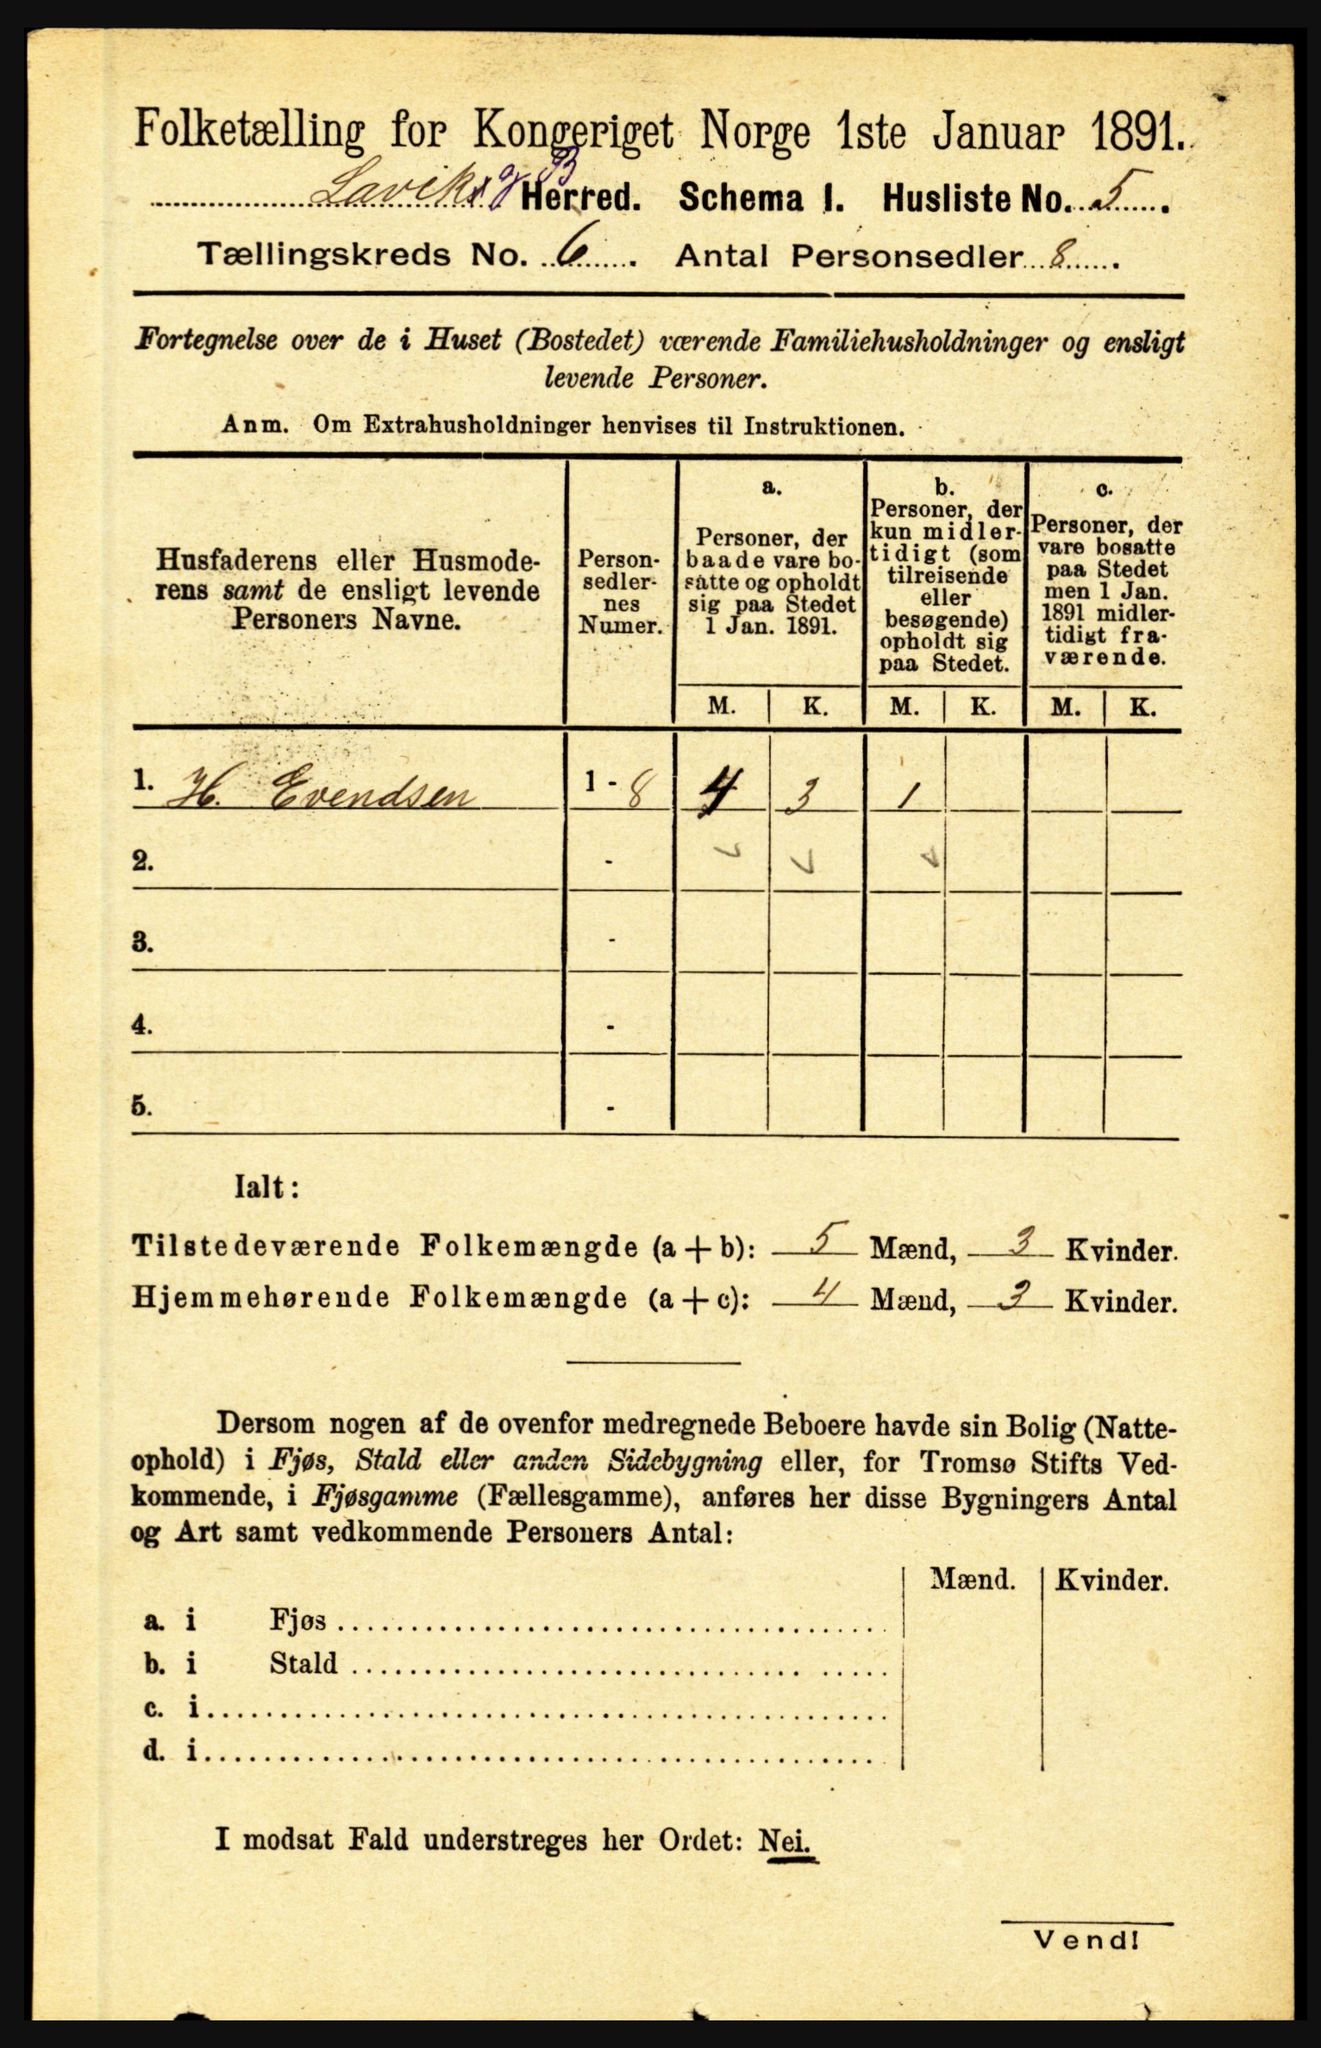 Folketælling for Kongeriget Norge 1ste Januar 1891.
Laviks og B Herred. Schema I. Husliste No. 5.
Tællingskreds No. 6. Antal Personsedler 8.
Fortegnelse over de i Huset (Bostedet) værende Familiehusholdninger og ensligt
levende Personer.
Anm. Om Extrahusholdninger henvises til Instruktionen.
Husfaderens eller Husmode-
rens samt de ensligt levende
Personers Navne.
Person-
sedler-
nes
Numer.
a.
Personer, der
baade vare bo-
satte og opholdt
sig paa Stedet
1 Jan. 1891.
b.
Personer, der
kun midler-
tidigt (som
tilreisende
eller
besøgende)
opholdt sig
paa Stedet.
c.
Personer, der
vare bosatte
paa Stedet
men 1 Jan.
1891 midler-
tidigt fra-
værende.
M. K. M. K. M. K.
1. H. Evendsen 1 - 8 4 3 1
2. -
3. -
4. -
5. -
Ialt:
Tilstedeværende Folkemængde (a + b): 5 Mænd, 3 Kvinder.
Hjemmehørende Folkemængde (a + c): 4 Mænd, 3 Kvinder.
Dersom nogen af de ovenfor medregnede Beboere havde sin Bolig (Natte-
ophold) i Fjøs, Stald eller anden Sidebygning eller, for Tromsø Stifts Ved-
kommende, i Fjøsgamme (Fællesgamme), anføres her disse Bygningers Antal
og Art samt vedkommende Personers Antal:
Mænd. Kvinder.
a. i Fjøs
b. i Stald
c. i
d. i
I modsat Fald understreges her Ordet: Nei.
Vend!